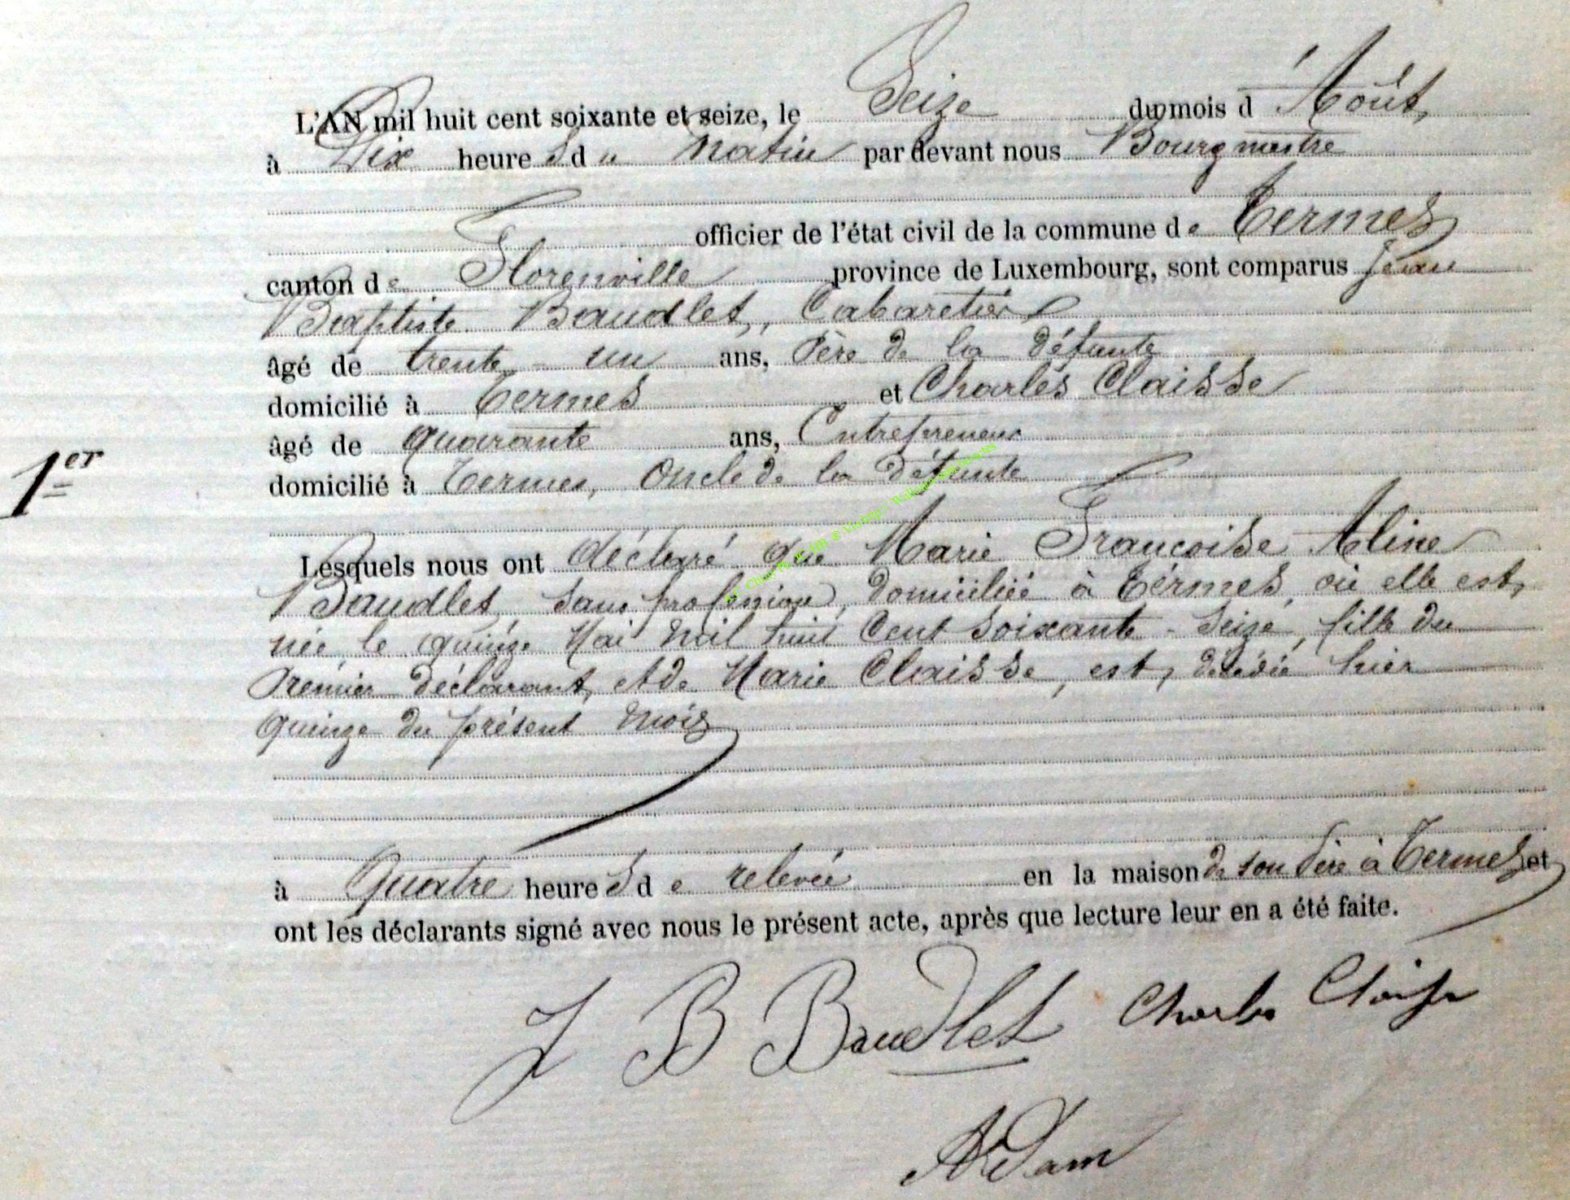 L'AN mil huit cent soixante et seize, le Seize du mois d'Août,
à Dix heures du Matin par devant nous Bourgmestre
officier de l'état civil de la commune de Termes
canton de Florenville province de Luxembourg, sont comparus Jean
Baptiste Baudlet, Cabaretier
âgé de trente-un ans, Père de la défunte
domicilié à Termes et Charles Claisse
âgé de quarante ans, Entrepreneur
domicilié à Termes, Oncle de la défunte
1er
Lesquels nous ont déclaré que Marie Francoise Aline
Baudlet, sans profession, domiciliée à Termes, où elle est,
née le quinze Mai mil huit Cent soixante-seize, fille du
Premier déclarant, et de Marie Claisse, est, décédée hier
quinze du présent mois
à Quatre heures de relevée en la maison de son Père à Termes et
ont les déclarants signé avec nous le présent acte, après que lecture leur en a été faite.
J B Baudlet Charles Claisse
Adam